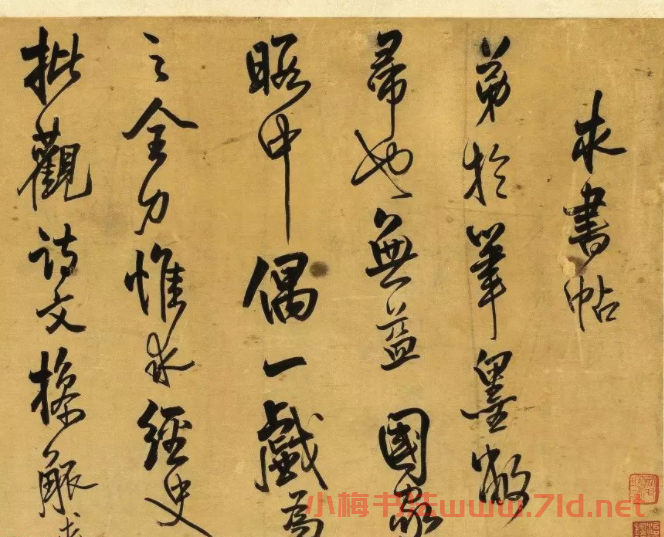 求書帖
弟於筆墨敝
帚也無益國家
暇中偶一戲為
之全力惟求經史
批觀詩文操觚
小梅书法www.7ld.net